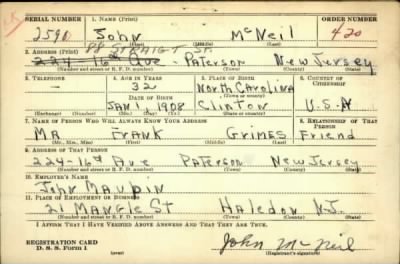 SERIAL NUMBER 1. NAME (Print) ORDER NUMBER
2590 John McNeil 420
(First) (Middle) (Last)
88 STRAIGT ST.
2. ADDRESS (Print)
224-16th Ave - Paterson New Jersey
(Number and street or R. F. D. number) (Town) (County) (State)
3. TELEPHONE 4. AGE IN YEARS 5. PLACE OF BIRTH 6. COUNTRY OF CITIZENSHIP
- 32 North Carolina
DATE OF BIRTH (Town or county)
JAN 1, 1908 Clinton U.S.A
(Exchange) (Number) (Mo.) (Day) (Yr.) (State or country)
7. NAME OF PERSON WHO WILL ALWAYS KNOW YOUR ADDRESS 8. RELATIONSHIP OF THAT PERSON
MR Frank Grimes Friend
(Mr., Mrs., Miss) (First) (Middle) (Last)
9. ADDRESS OF THAT PERSON
224-16th Ave Paterson New Jersey
(Number and street or R. F. D. number) (Town) (County) (State)
10. EMPLOYER'S NAME
John Maupin
11. PLACE OF EMPLOYMENT OR BUSINESS
21 Mangle St Haledon N.J.
(Number and street or R. F. D. number) (Town) (County) (State)
I AFFIRM THAT I HAVE VERIFIED ABOVE ANSWERS AND THAT THEY ARE TRUE.
REGISTRATION CARD
D. S. S. Form 1 (over) John McNeil
(Registrant's signature)